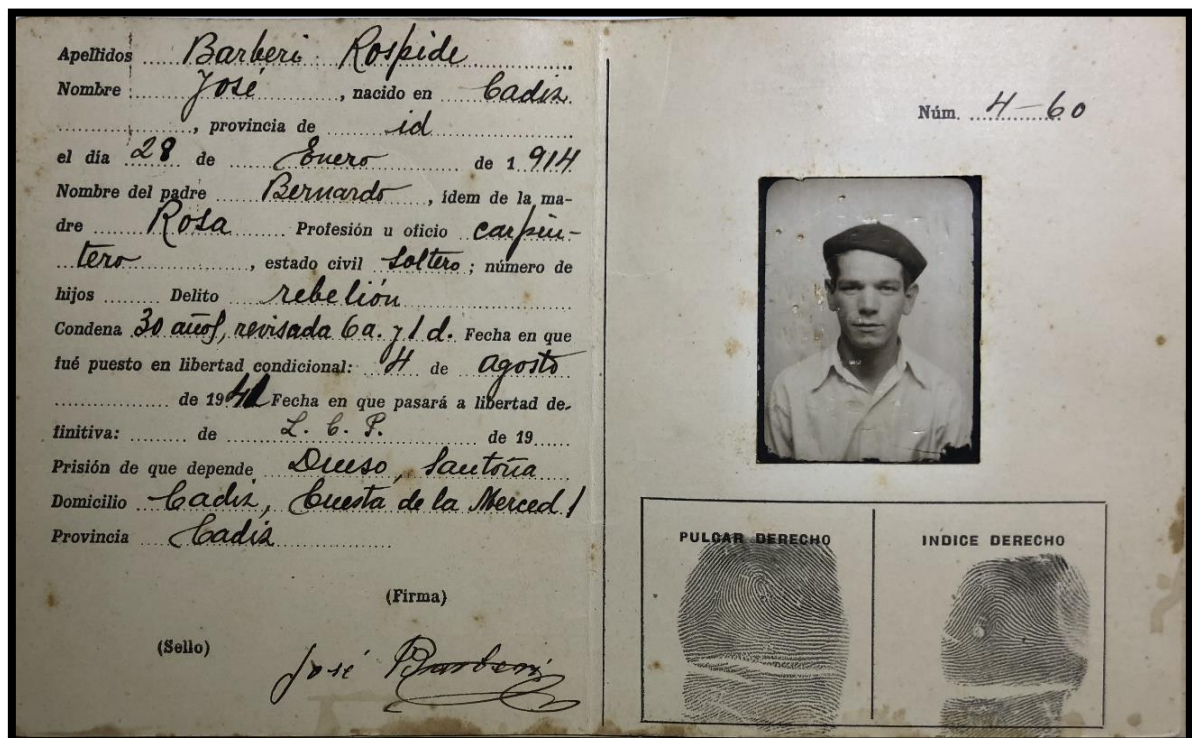 Apellidos Barberi Rospide
Nombre José, nacido en Cadiz
, provincia de id
el día 28 de Enero de 1 914
Nombre del padre Bernardo, ídem de la ma-
dre Rosa Profesión u oficio carpin-
tero, estado civil Soltero; número de
hijos Delito rebelión
Condena 30 años, revisada 6 a. y 1 d. Fecha en que
fué puesto en libertad condicional: 4 de agosto
de 1941 Fecha en que pasará a libertad de-
finitiva: de L. C. P. de 19
Prisión de que depende Dueso, Santoña
Domicilio Cadiz, Cuesta de la Merced 1
Provincia Cadiz
(Firma)
(Sello)
José Barberi
Núm. 4-60
PULGAR DERECHO
INDICE DERECHO